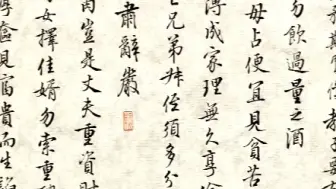 教子
勿飲過量之酒
毋占便宜見貧苦
薄成家理無久享
兄弟叔侄須多分
肅辭嚴
肉豈是丈夫重資財
女擇佳婿勿索重
奩見富貴而生諂